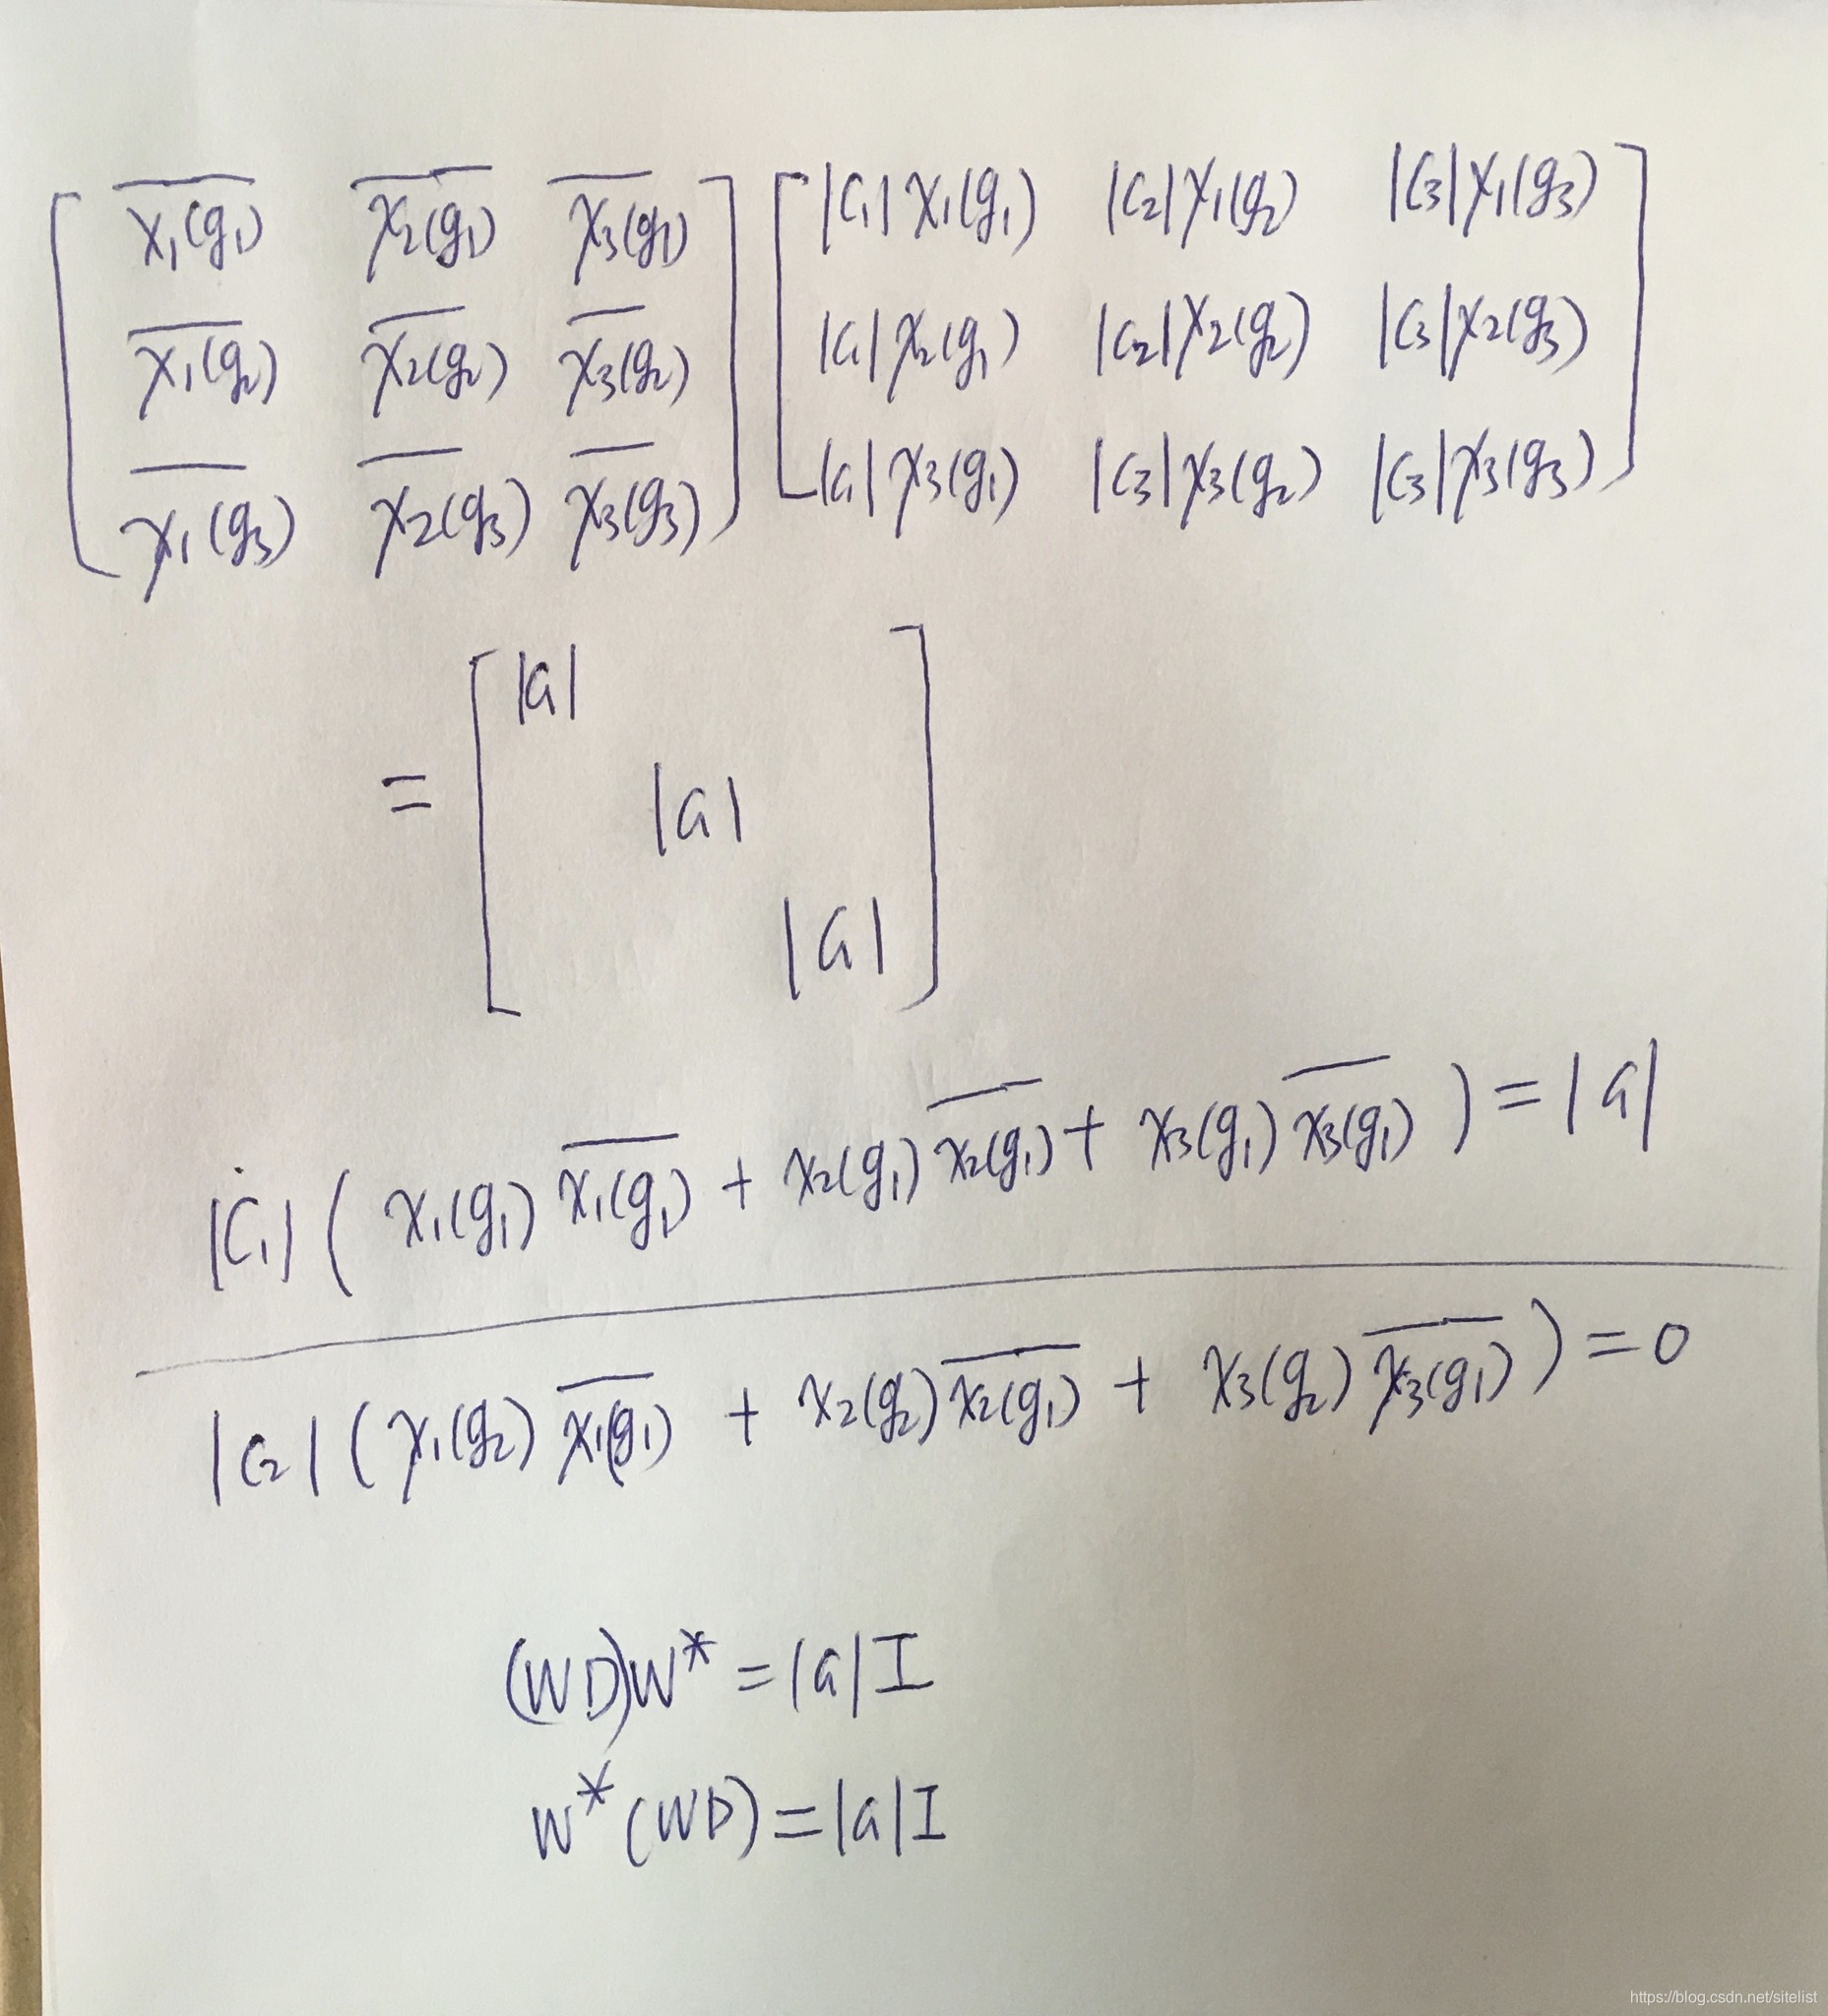 [ \overline{χ₁(g₁)} \overline{χ₂(g₁)} \overline{χ₃(g₁)} ] [ |C₁|χ₁(g₁) |C₂|χ₁(g₂) |C₃|χ₁(g₃) ]
\overline{χ₁(g₂)} \overline{χ₂(g₂)} \overline{χ₃(g₂)} |C₁|χ₂(g₁) |C₂|χ₂(g₂) |C₃|χ₂(g₃)
\overline{χ₁(g₃)} \overline{χ₂(g₃)} \overline{χ₃(g₃)} |C₁|χ₃(g₁) |C₃|χ₃(g₂) |C₃|χ₃(g₃)
[ |G|
= |G|
|G| ]
|C₁| ( χ₁(g₁) \overline{χ₁(g₁)} + χ₂(g₁) \overline{χ₂(g₁)} + χ₃(g₁) \overline{χ₃(g₁)} ) = |G|
|C₂| ( χ₁(g₂) \overline{χ₁(g₁)} + χ₂(g₂) \overline{χ₂(g₁)} + χ₃(g₂) \overline{χ₃(g₁)} ) = 0
(WD)W* = |G| I
W*(WD) = |G| I
https://blog.csdn.net/sitelist